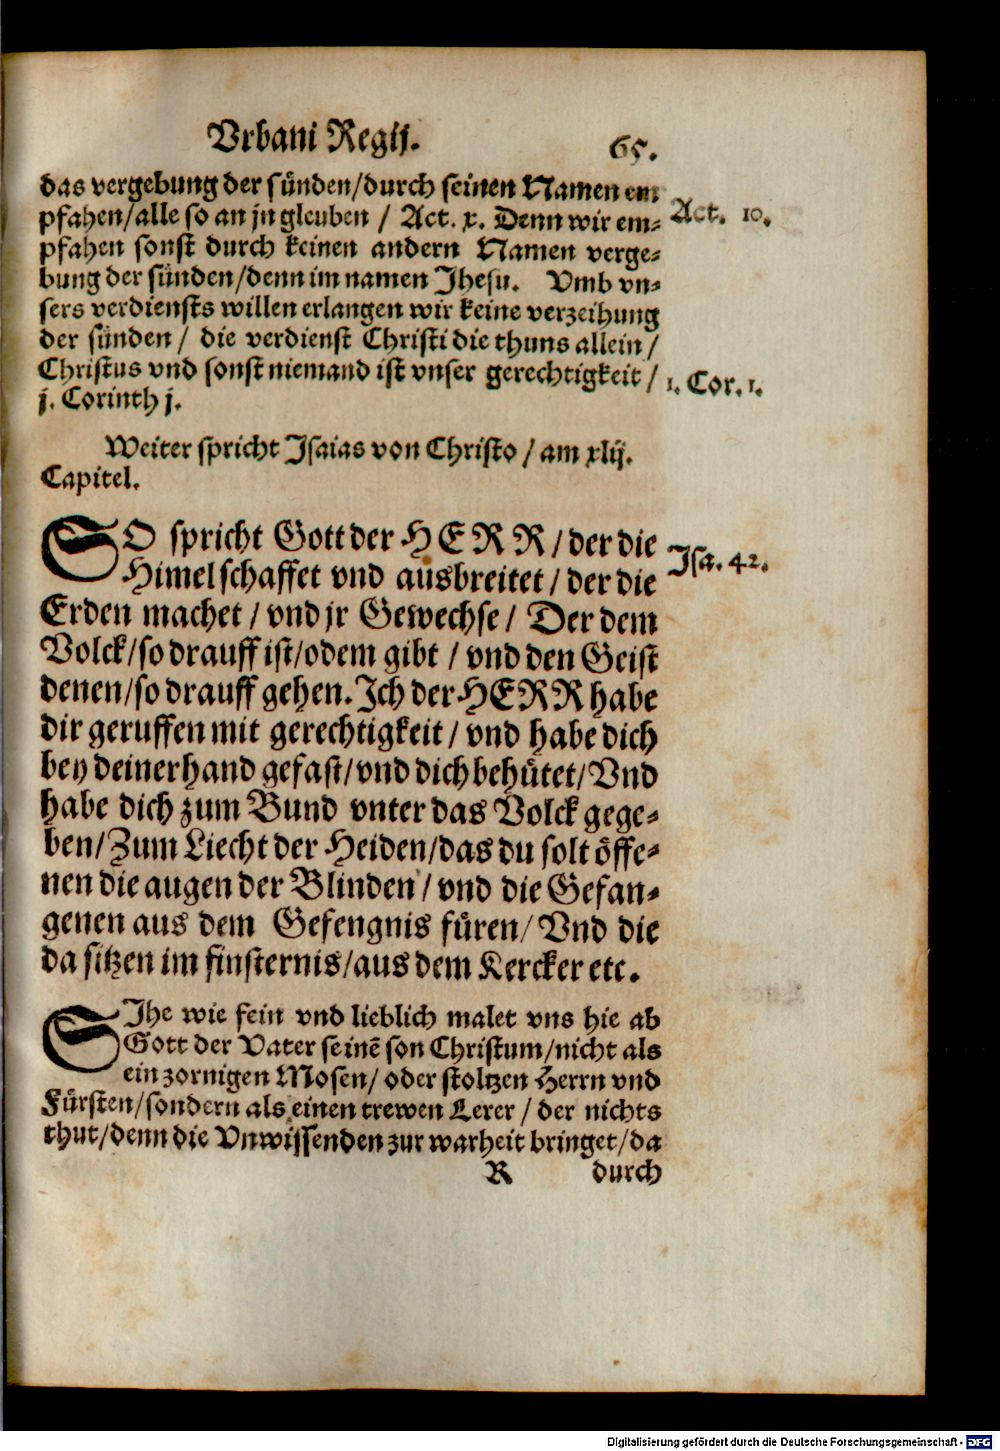 Vrbani Regij.
65.
das vergebung der sünden/durch seinen Namen em-
pfahen/alle so an jn gleuben / Act. x. Denn wir em-
Act. 10.
pfahen sonst durch keinen andern Namen verge-
bung der sünden/denn im namen Jhesu. Vmb vn-
sers verdiensts willen erlangen wir keine verzeihung
der sünden / die verdienst Christi die thuns allein /
Christus vnd sonst niemand ist vnser gerechtigkeit /
1. Cor. 1.
j. Corinth j.
Weiter spricht Jsaias von Christo / am xlij.
Capitel.
SO spricht Gott der HERR / der die
Jsa. 42.
Himel schaffet vnd ausbreitet / der die
Erden machet / vnd jr Gewechse / Der dem
Volck/so drauff ist/odem gibt / vnd den Geist
denen/so drauff gehen. Jch der HERR habe
dir geruffen mit gerechtigkeit / vnd habe dich
bey deiner hand gefast/vnd dich behütet/Vnd
habe dich zum Bund vnter das Volck gege-
ben/Zum Liecht der Heiden/das du solt öffe-
nen die augen der Blinden / vnd die Gefan-
genen aus dem Gefengnis füren/Vnd die
da sitzen im finsternis/aus dem Kercker etc.
SJhe wie fein vnd lieblich malet vns hie ab
Gott der Vater seinē son Christum/nicht als
ein zornigen Mosen/ oder stoltzen Herrn vnd
Fürsten/sondern als einen trewen Lerer / der nichts
thut/denn die Vnwissenden zur warheit bringet/da
R durch
Digitalisierung gefördert durch die Deutsche Forschungsgemeinschaft - DFG